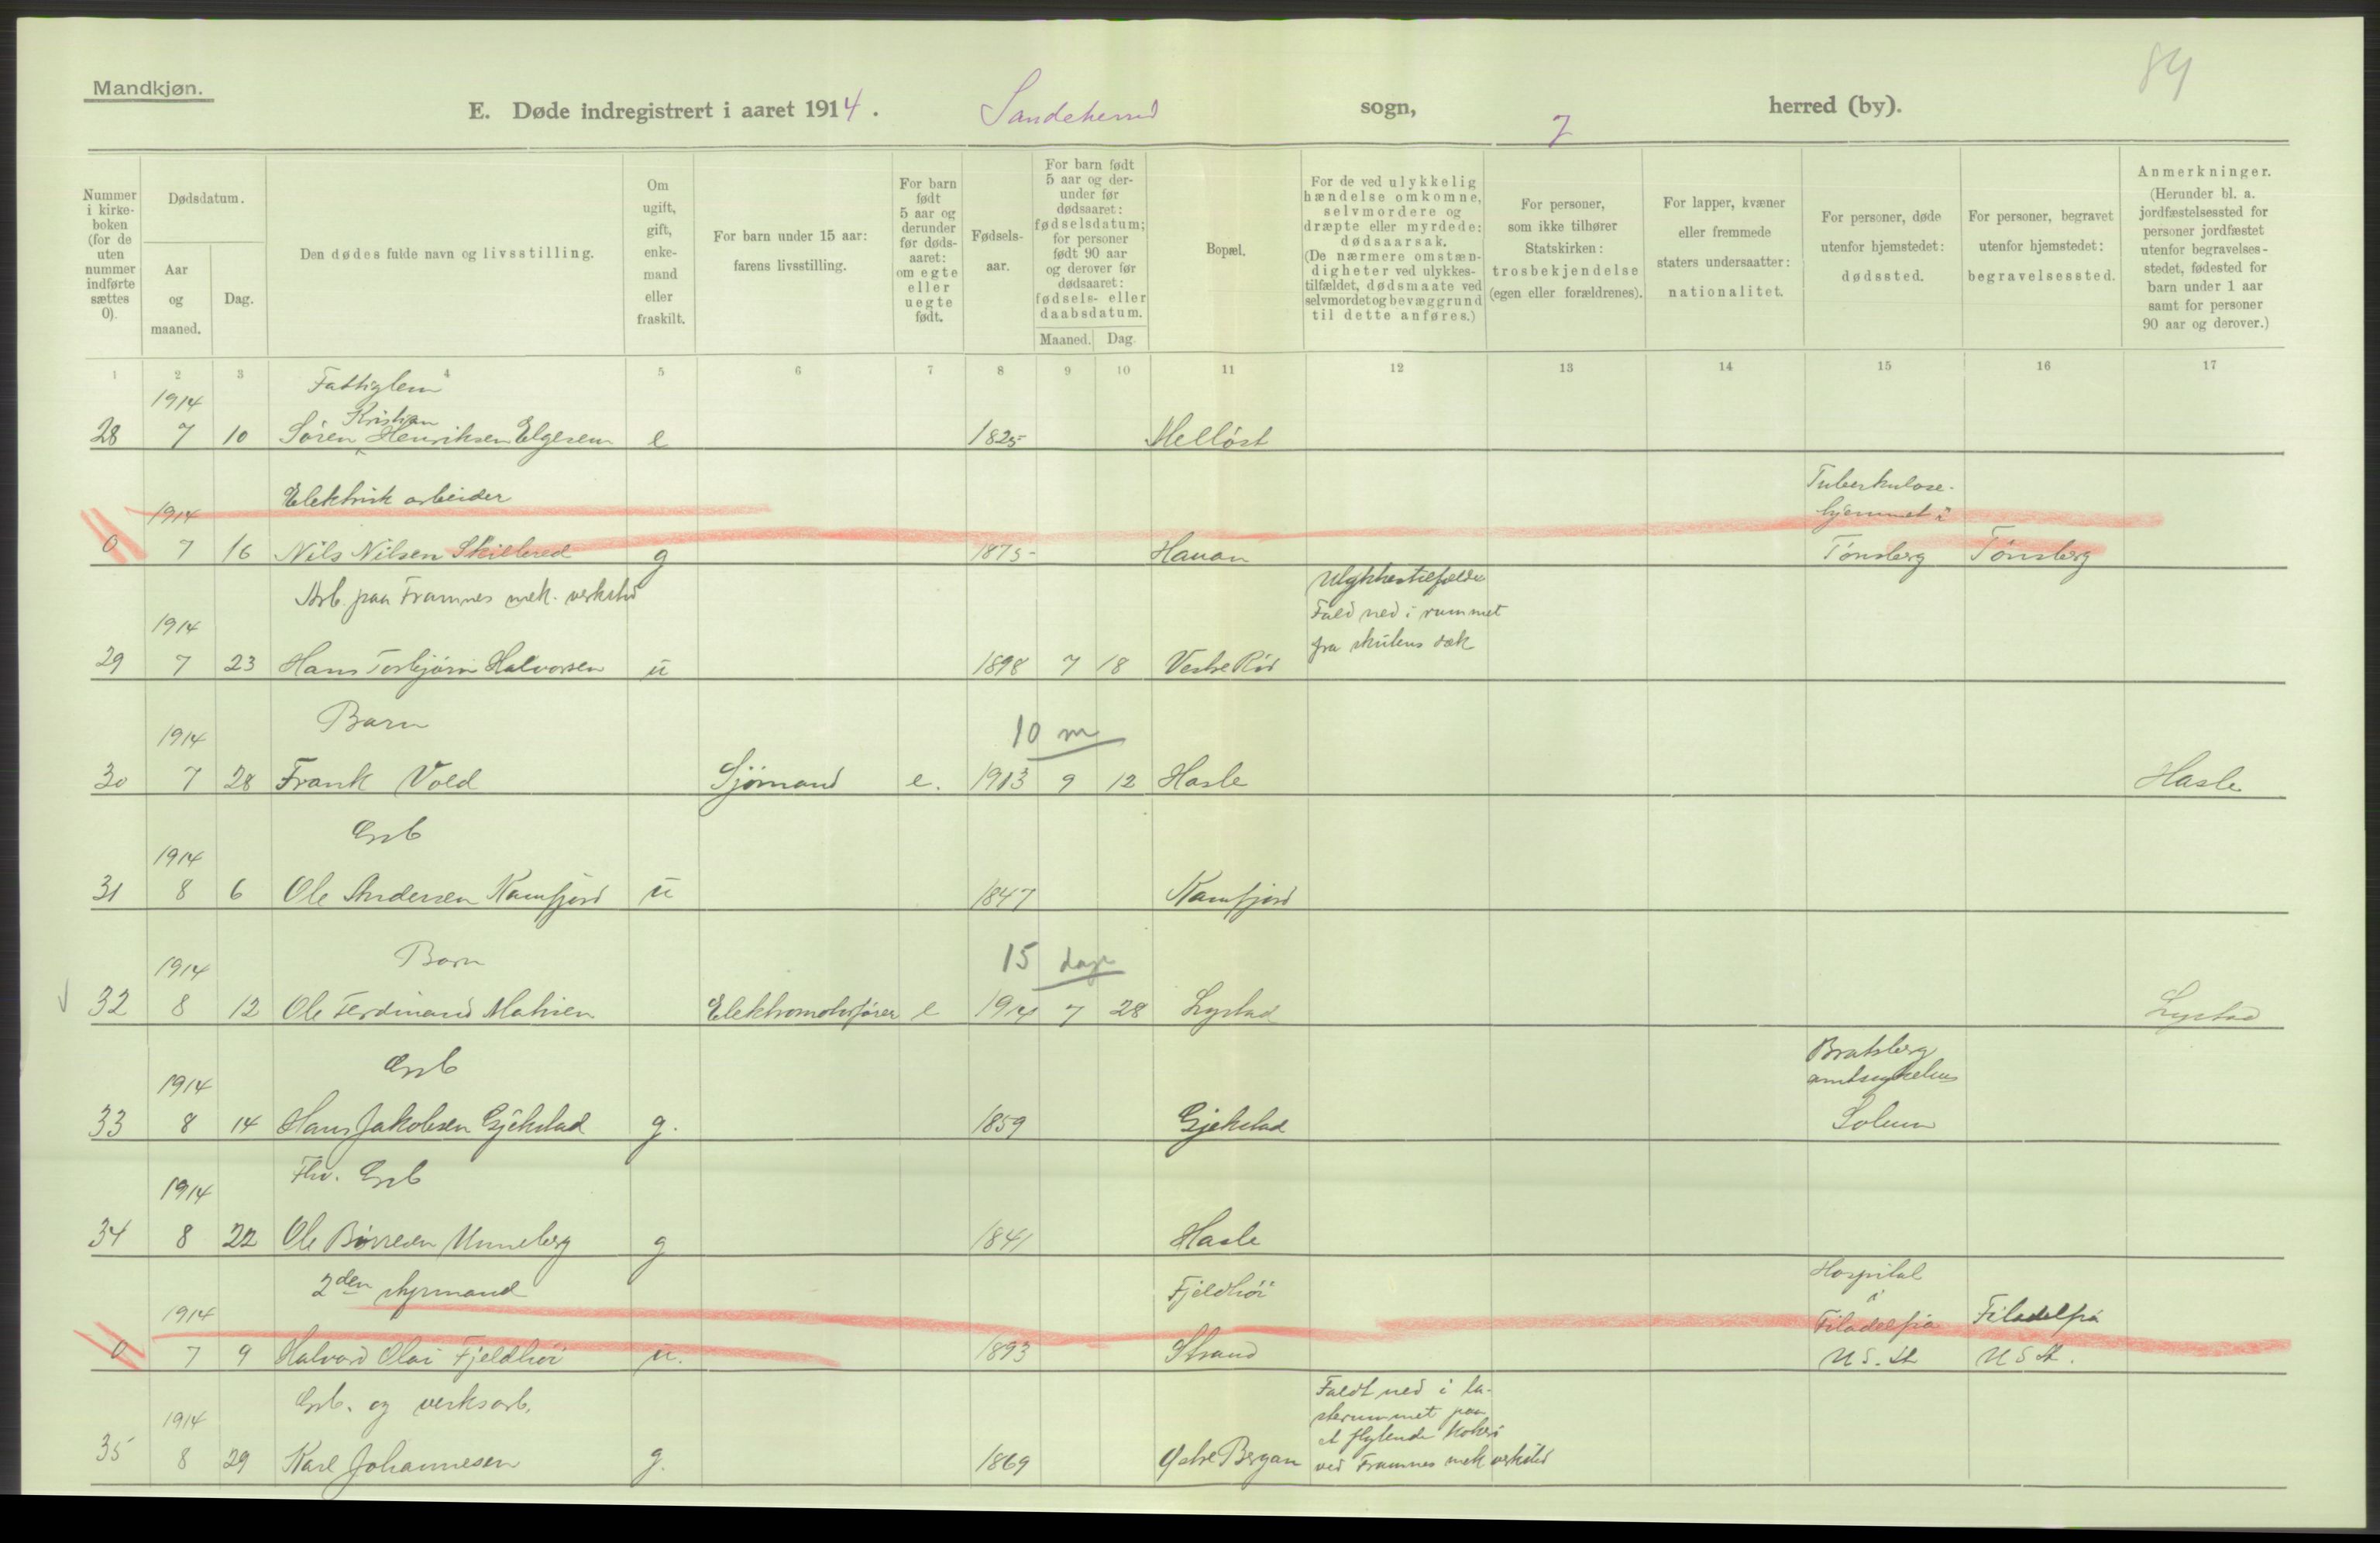 Mandkjøn.
84
E. Døde indregistrert i aaret 1914. Sandeherred sogn, 7 herred (by).
Nummer i kirke- boken (for de uten nummer indførte sættes 0).
Dødsdatum.
Aar og maaned.
Dag.
Den dødes fulde navn og livsstilling.
Om ugift, gift, enke- mand eller fraskilt.
For barn under 15 aar: farens livsstilling.
For barn født 5 aar og derunder før døds- aaret: om egte eller uegte født.
Fødsels- aar.
For barn født 5 aar og der- under før dødsaaret: fødselsdatum; for personer født 90 aar og derover før dødsaaret: fødsels- eller daabsdatum.
Maaned. Dag.
Bopæl.
For de ved ulykkelig hændelse omkomne, selvmordere og dræpte eller myrdede: dødsaarsak. (De nærmere omstæn- digheter ved ulykkes- tilfældet, dødsmaate ved selvmordet og bevæggrund til dette anføres.)
For personer, som ikke tilhører Statskirken: trosbekjendelse (egen eller forældrenes).
For lapper, kvæner eller fremmede staters undersaatter: nationalitet.
For personer, døde utenfor hjemstedet: dødssted.
For personer, begravet utenfor hjemstedet: begravelsessted.
Anmerkninger. (Herunder bl. a. jordfæstelsessted for personer jordfæstet utenfor begravelses- stedet, fødested for barn under 1 aar samt for personer 90 aar og derover.)
1 2 3 4 5 6 7 8 9 10 11 12 13 14 15 16 17
Fattiglem
1914
Kristian
28 7 10 Søren Henriksen Elgesem e 1825 Melløst
Elektrisk arbeider
Tuberkulose-
1914 hjemmet i
0 7 16 Nils Nilsen Skilbred g 1875 Hauan Tønsberg Tønsberg
Arb. paa Framnes mek. verksted
Ulykkestilfælde
1914 Fald ned i rummet
fra skutens dæk
29 7 23 Hans Torbjørn Halvorsen u 1898 7 18 Vestre Rød
Barn
1914 10 m
30 7 28 Frank Vold Sjømand e. 1913 9 12 Hasle Hasle
Grb
1914
31 8 6 Ole Andersen Kamfjord u 1847 Kamfjord
Barn
1914 15 dage
32 8 12 Ole Ferdinand Mathisen Elektromotorfører e 1914 7 28 Lystad Lystad
Grb
Bratsberg
1914 amtssykehus
33 8 14 Hans Jakobsen Gjekstad g. 1859 Gjekstad Solum
Fhv. Grb
1914
34 8 22 Ole Børresen Unneberg g 1841 Hasle
2den styrmand Fjeldhøi Hospital
i
1914 Filadelfia Filadelfia
0 7 9 Halvard Olai Fjeldhøi u. 1893 Strand U S. St U S St.
Grb. og verksarb.
Faldt ned i la-
1914 sterummet paa
et flytende kokeri
35 8 29 Karl Johannesen g. 1869 Østre Bergan ved Framnes mek verksted